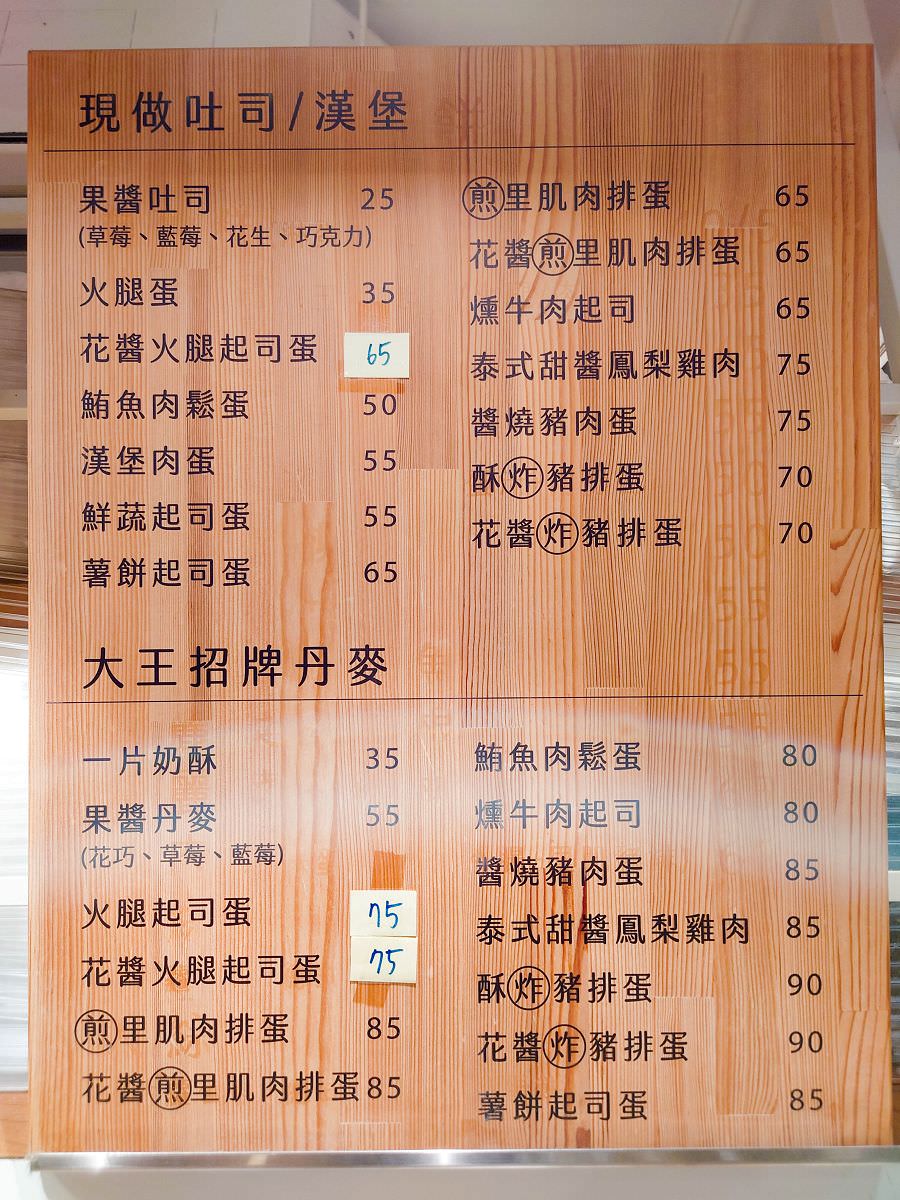 現做吐司/漢堡
果醬吐司 25
(草莓、藍莓、花生、巧克力)
火腿蛋 35
花醬火腿起司蛋 65
鮪魚肉鬆蛋 50
漢堡肉蛋 55
鮮蔬起司蛋 55
薯餅起司蛋 65
煎里肌肉排蛋 65
花醬煎里肌肉排蛋 65
燻牛肉起司 65
泰式甜醬鳳梨雞肉 75
醬燒豬肉蛋 75
酥炸豬排蛋 70
花醬炸豬排蛋 70
大王招牌丹麥
一片奶酥 35
果醬丹麥 55
(花巧、草莓、藍莓)
火腿起司蛋 75
花醬火腿起司蛋 75
煎里肌肉排蛋 85
花醬煎里肌肉排蛋 85
鮪魚肉鬆蛋 80
燻牛肉起司 80
醬燒豬肉蛋 85
泰式甜醬鳳梨雞肉 85
酥炸豬排蛋 90
花醬炸豬排蛋 90
薯餅起司蛋 85